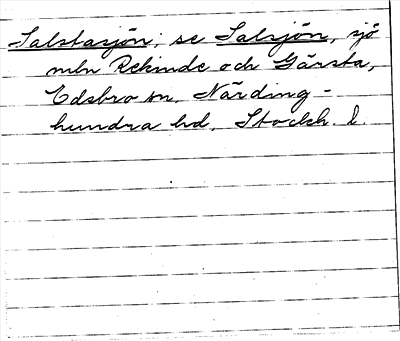 Salstasjön; se Salsjön, sjö
mln Rekinde och Gärsta,
Edsbro sn, Närding-
hundra hd, Stockh. l.